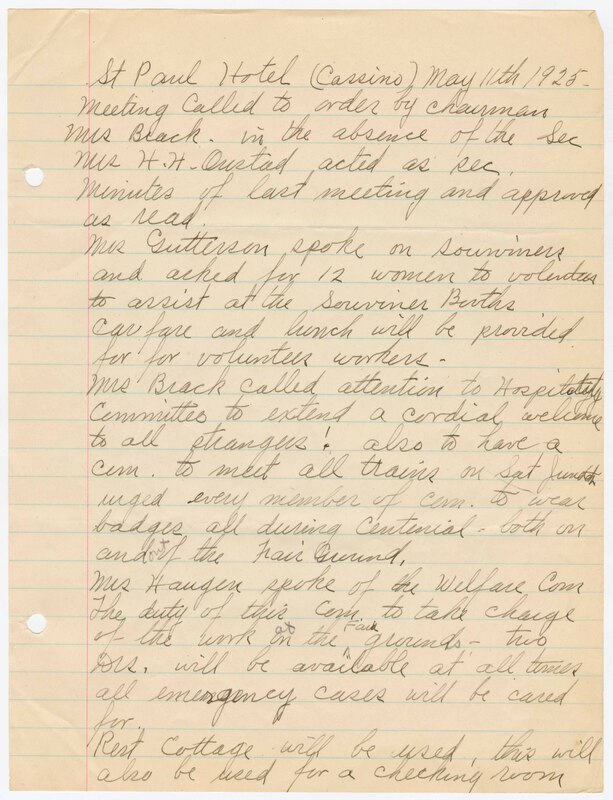 St Paul Hotel (Cassino) May 11th 1925-
Meeting Called to order by chairman
Mrs Brack. in the absence of the Sec
Mrs H.H. Oustad acted as sec.
Minutes of last meeting and approved
as read.
Mrs Gutterson spoke on Souviners
and asked for 12 women to volenteer
to assist at the Souviner Booths
Car fare and lunch will be provided
for for volunteer workers -
Mrs Brack called attention to Hospitality
Committee to extend a cordial welcome
to all strangers! also to have a
com. to meet all trains on Sat June
urged every member of com. to wear
badges all during Centenial - both on
and off the Fair Ground.
Mrs Haugen spoke of the Welfare Com
The duty of this Com. to take charge
of the work at the Fair grounds - two
Drs. will be available at all times
all emergency cases will be cared
for.
Rest Cottage will be used, this will
also be used for a checking room